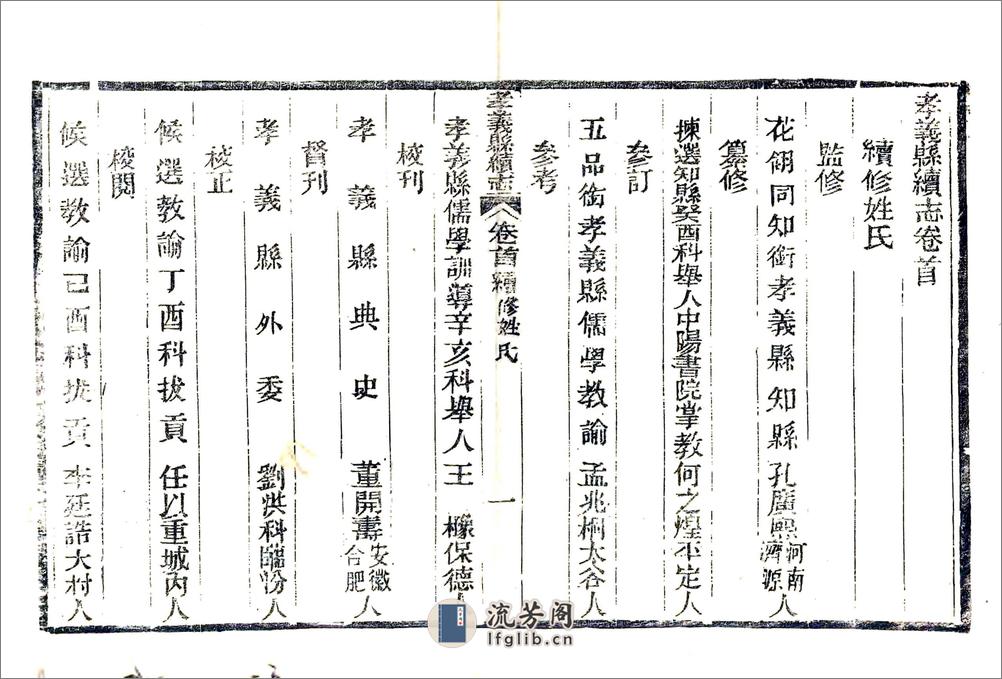 孝義縣續志卷首
續修姓氏
監修
花翎同知銜孝義縣知縣孔廣熙河南濟源人
纂修
揀選知縣癸酉科舉人中陽書院掌教何之煌平定人
參訂
五品銜孝義縣儒學教諭孟兆桐太谷人
參考
孝義縣續志 卷首續修姓氏 一
孝義縣儒學訓導辛亥科舉人王 橡保德人
校刊
孝義縣典史 董開壽安徽合肥人
督刊
孝義縣外委 劉洪科臨汾人
校正
候選教諭丁酉科拔貢 任以重城內人
校閱
候選教諭己酉科拔貢 李廷誥大村人
流芳阁
lfglib.cn